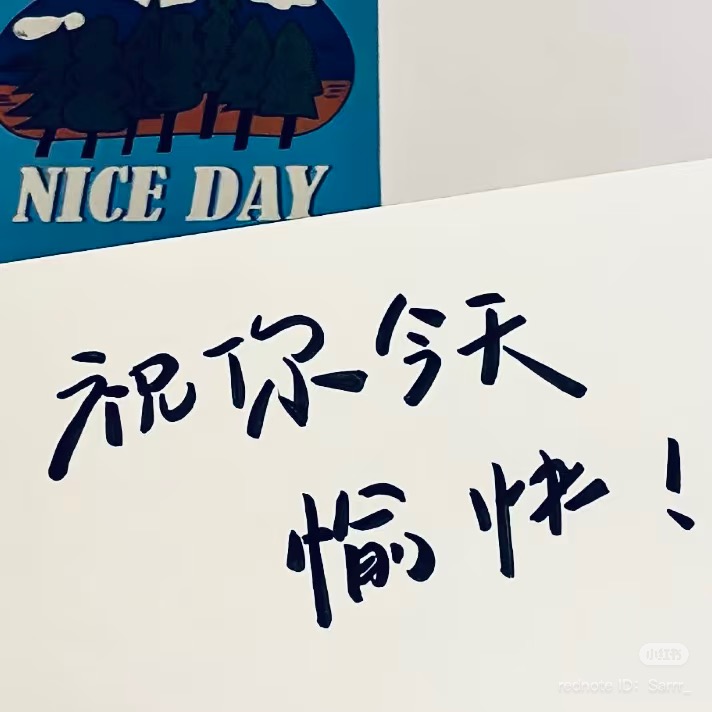 NICE DAY
祝你今天
愉快！
小红书
rednote ID: Sarrr_